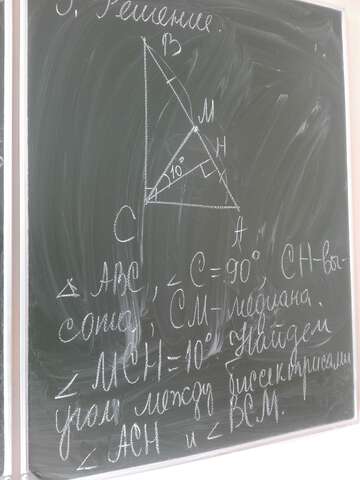 3. Решение.
B
M
H
10°
C
A
△ ABC, ∠ C = 90°, CH-вы-
сота, CM-медиана.
∠ MCH = 10° Найдем
угол между биссектрисами
∠ ACH и ∠ BCM.